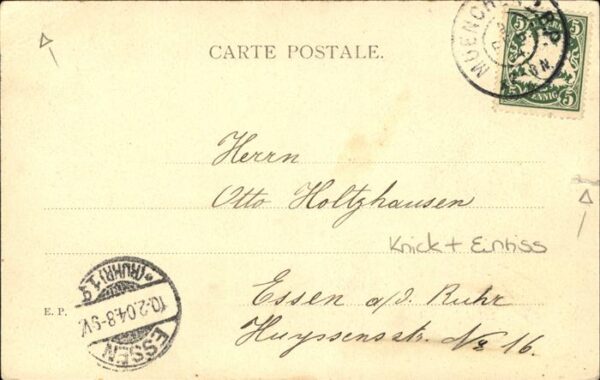 CARTE POSTALE.
5 5
BAYERN
PFENNIG
5 5
Herrn
Otto Holtzhausen
Knick + Einriss
Essen a/d. Ruhr
Huyssensstr. No 16.
E. P.
ESSEN
10.2.04.8-9V.
(RUHR) 1